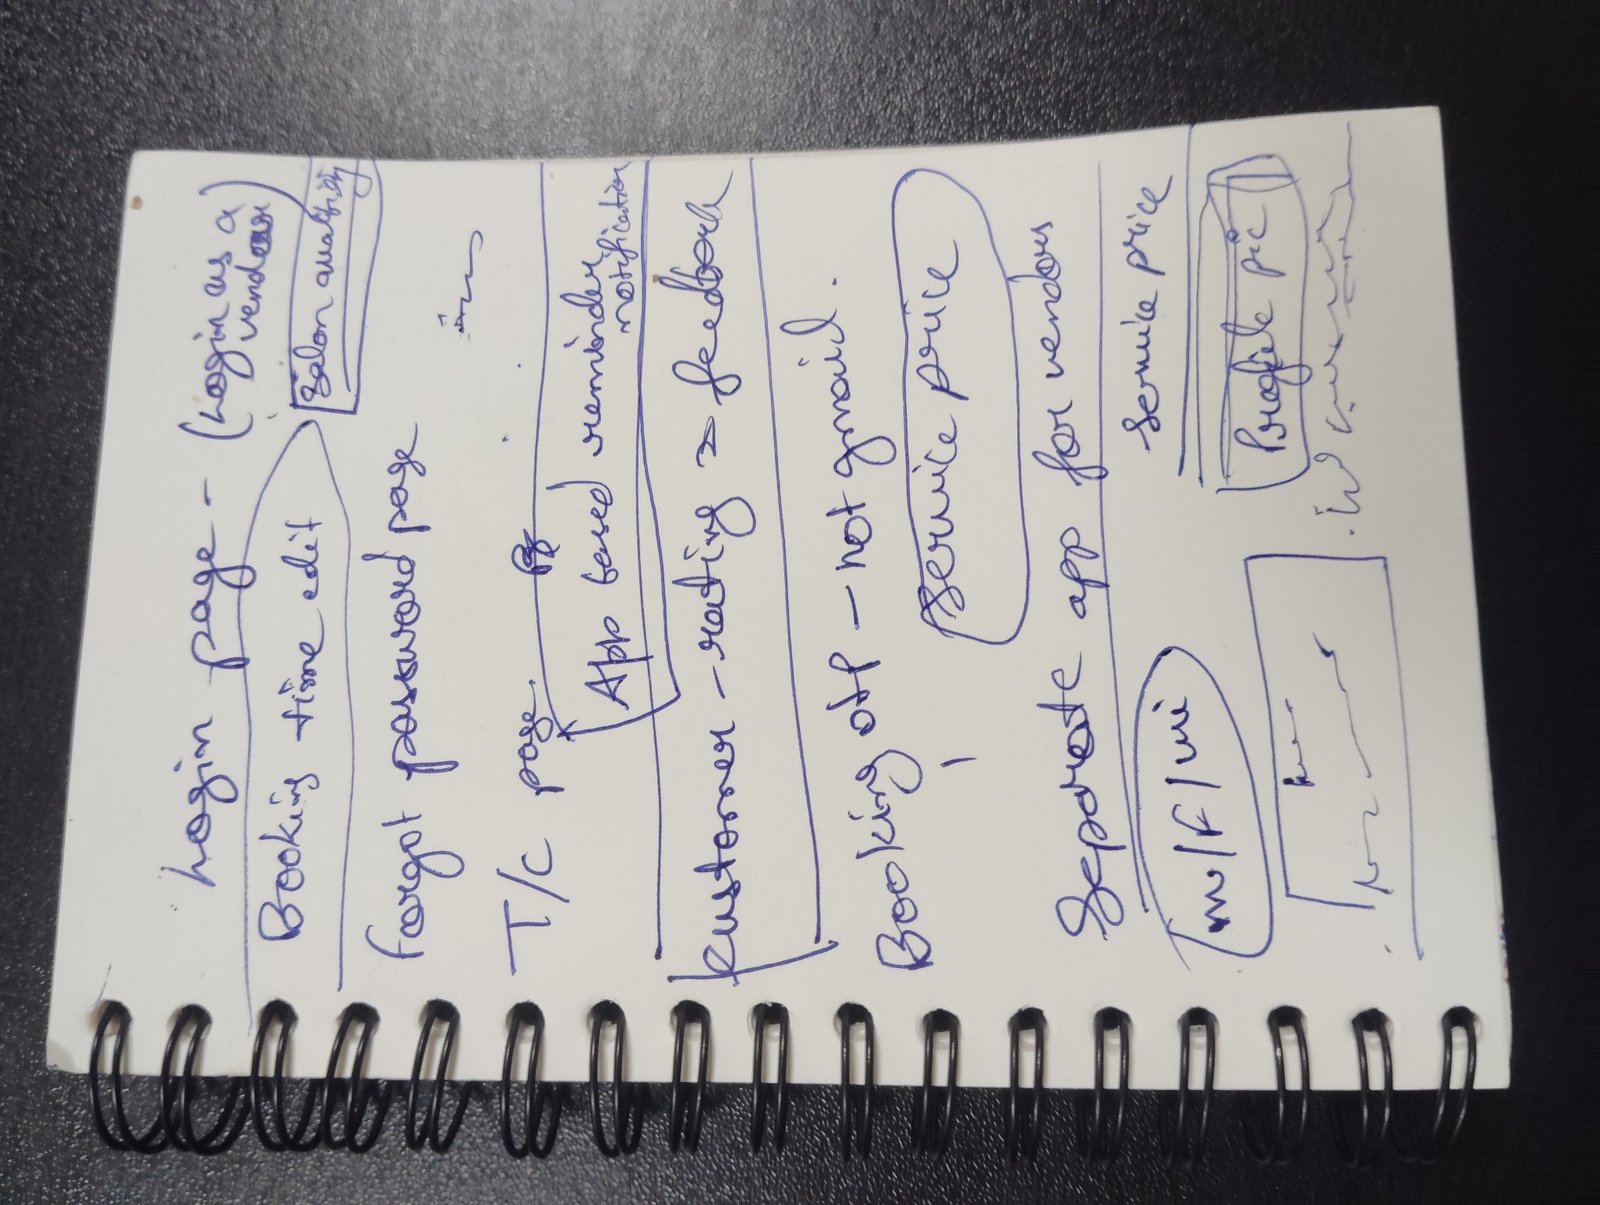 Login page - (Login as a
vendor
Booking time edit
Salon quality
forgot password page
T/C page
App based reminder
notification
Customer - rating 2 feedback
Booking otp - not gmail.
Service price
Separate app for vendors
m/F/uni
Service price
Profile pic